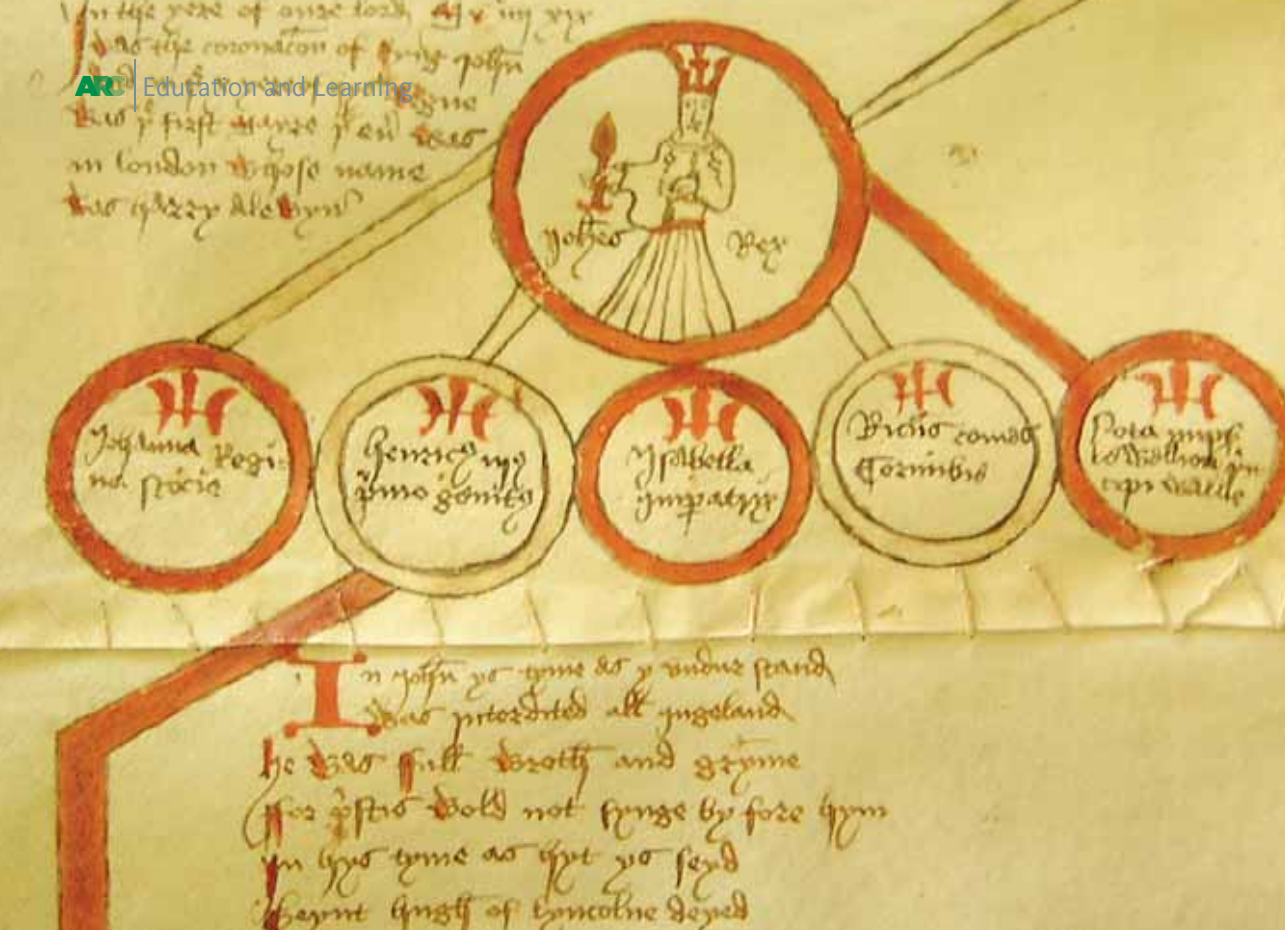 In the yere of oure lord
was the coronacon of kynge John
ARC Education and Learning
was þe first mayre þt eu was
in london whose name
was harry Alewyn
Johes Rex
Johanna Regi
na scocie
Henric iij
pmo genit
Ysabella
Imperatrix
Ricus comes
Cornubie
In John ys tyme as y vndurstand
Was interdited all ingeland
He was full wroth and gryme
For pstis wold not synge by fore hym
In hys tyme as hyt ys seyd
Seynt hugh of lyncolne deyed